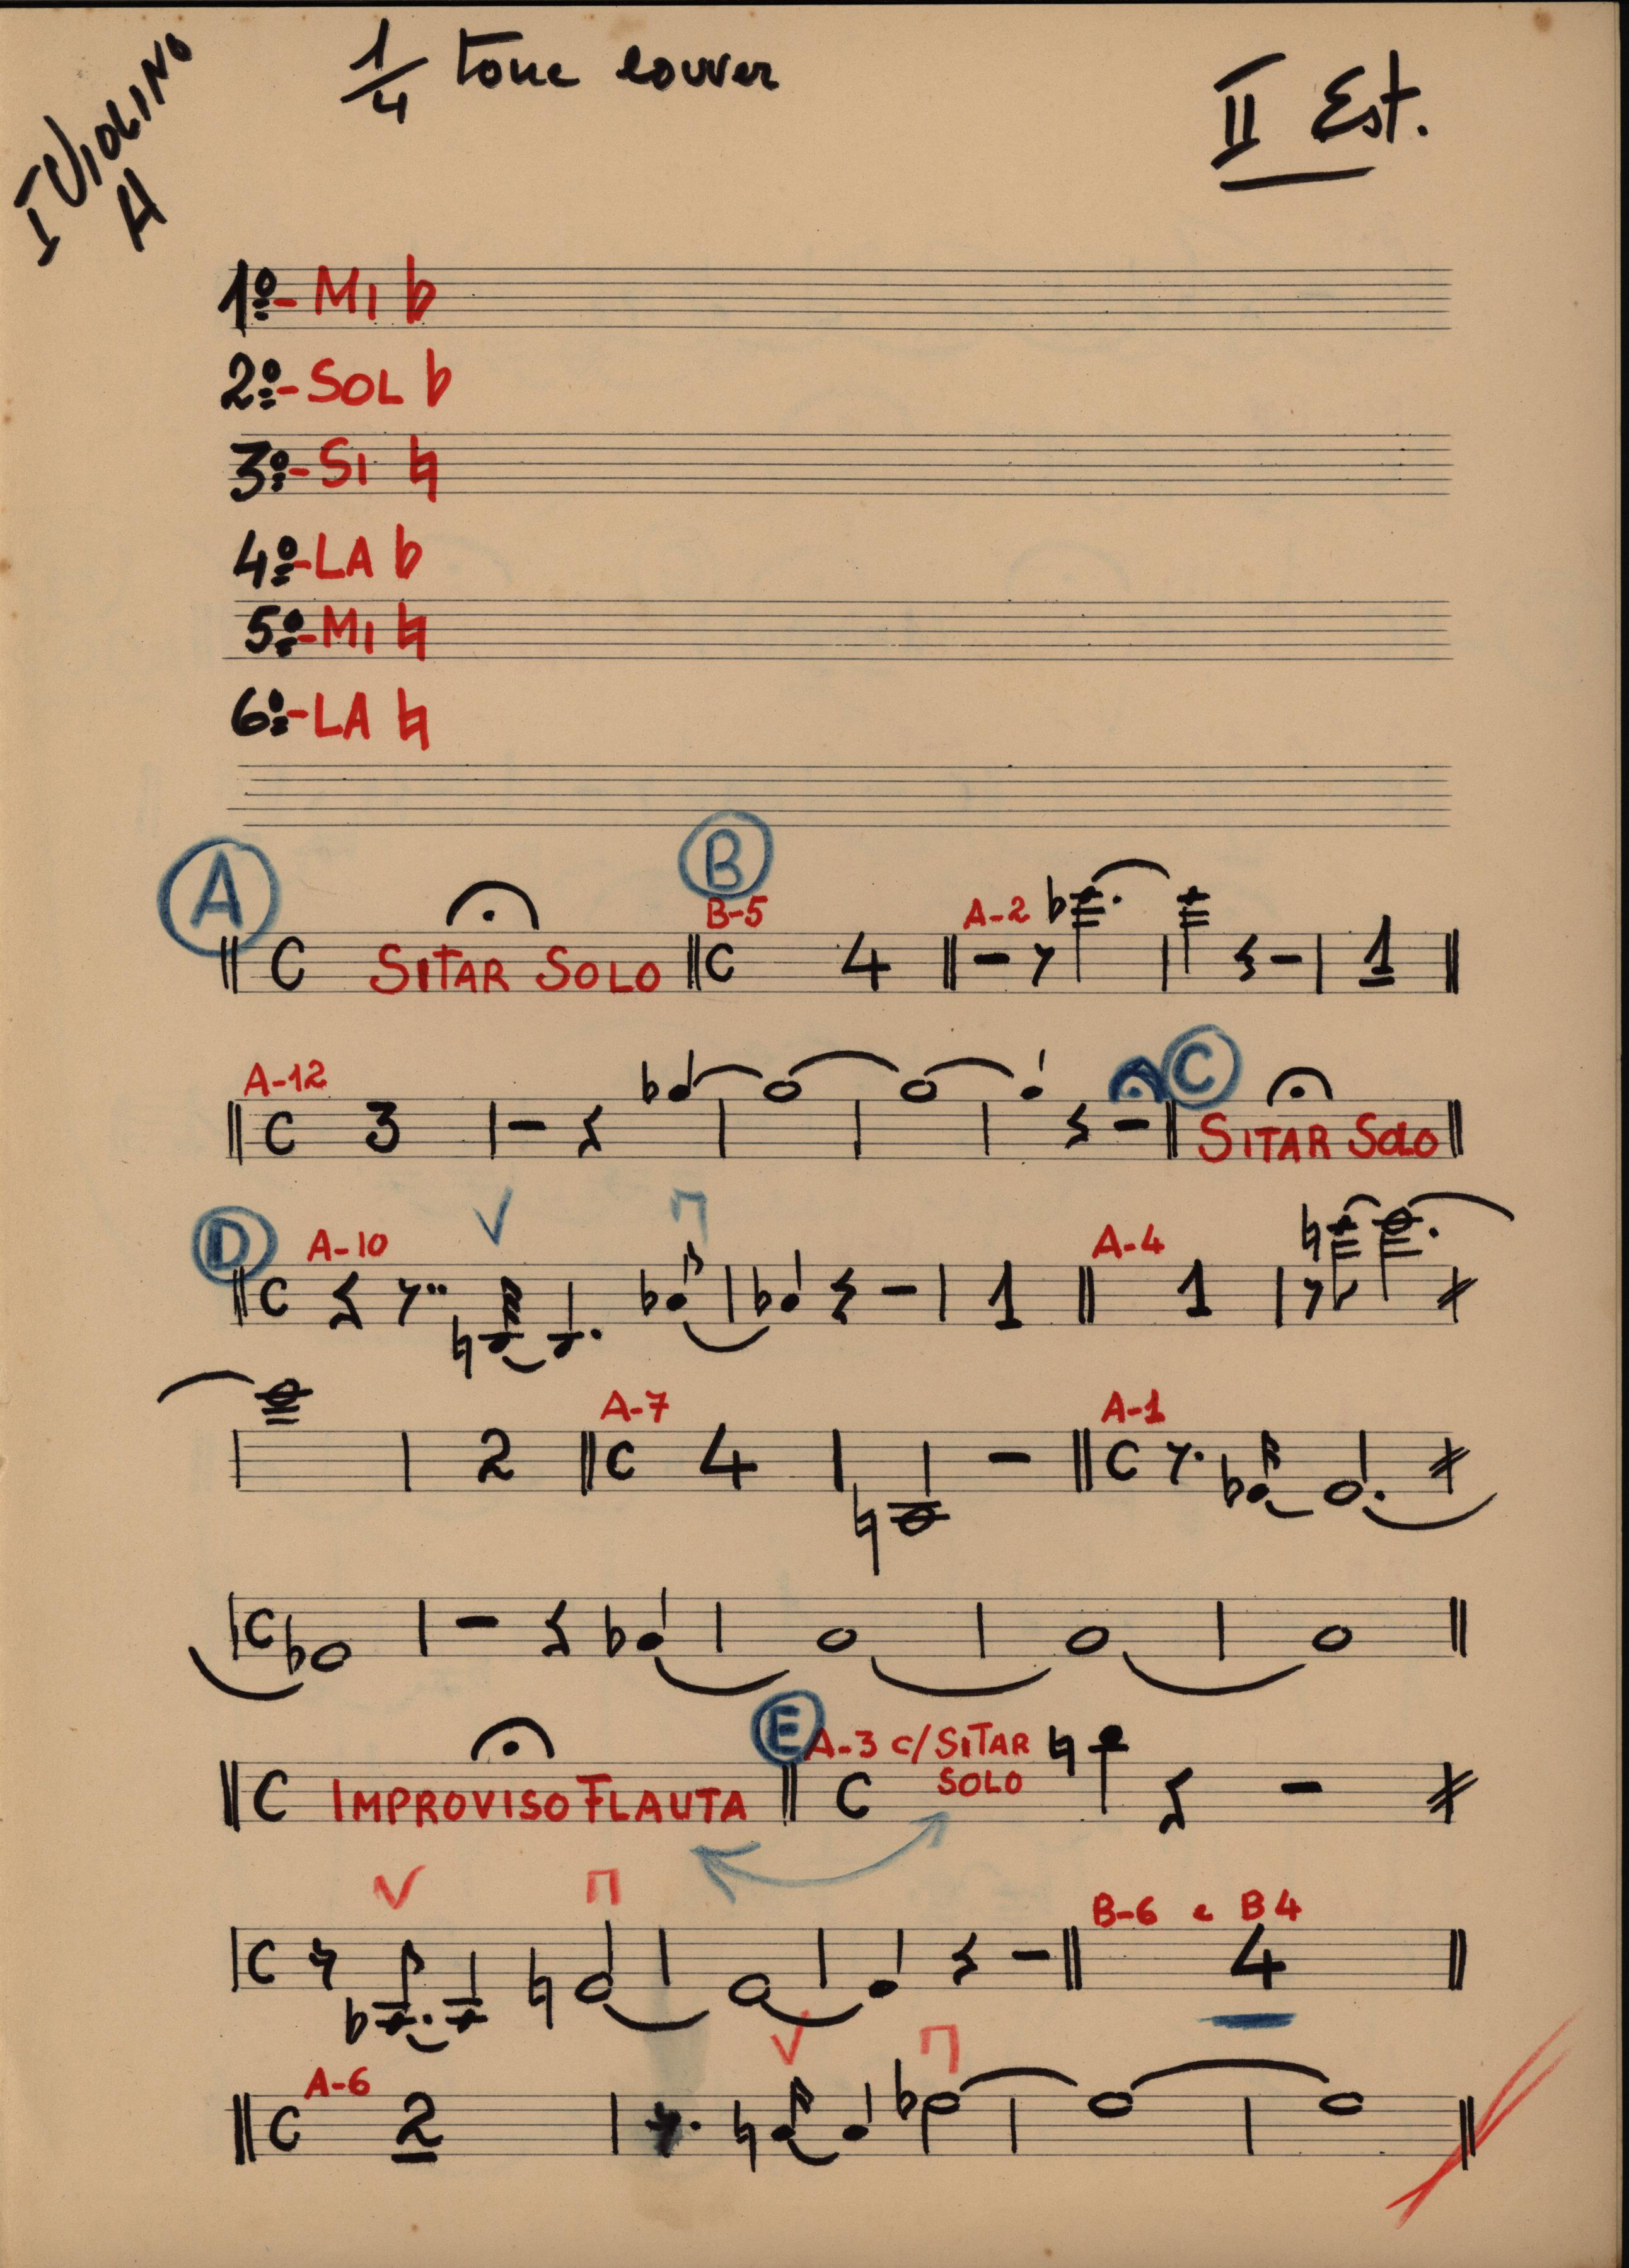 I VIOLINO
A
1/4 tone lower
II Est.
1º - MI ♭
2º - SOL ♭
3º - SI ♮
4º - LA ♭
5º - MI ♮
6º - LA ♮
A B
B-5 A-2
C SITAR SOLO C 4 1
A-12 C
C 3 SITAR SOLO
D A-10 A-4
C 1 1
A-7 A-1
2 C 4 C
C
E A-3 c/ SITAR
SOLO
C IMPROVISO FLAUTA C
B-6 e B4
C 4
A-6
C 2